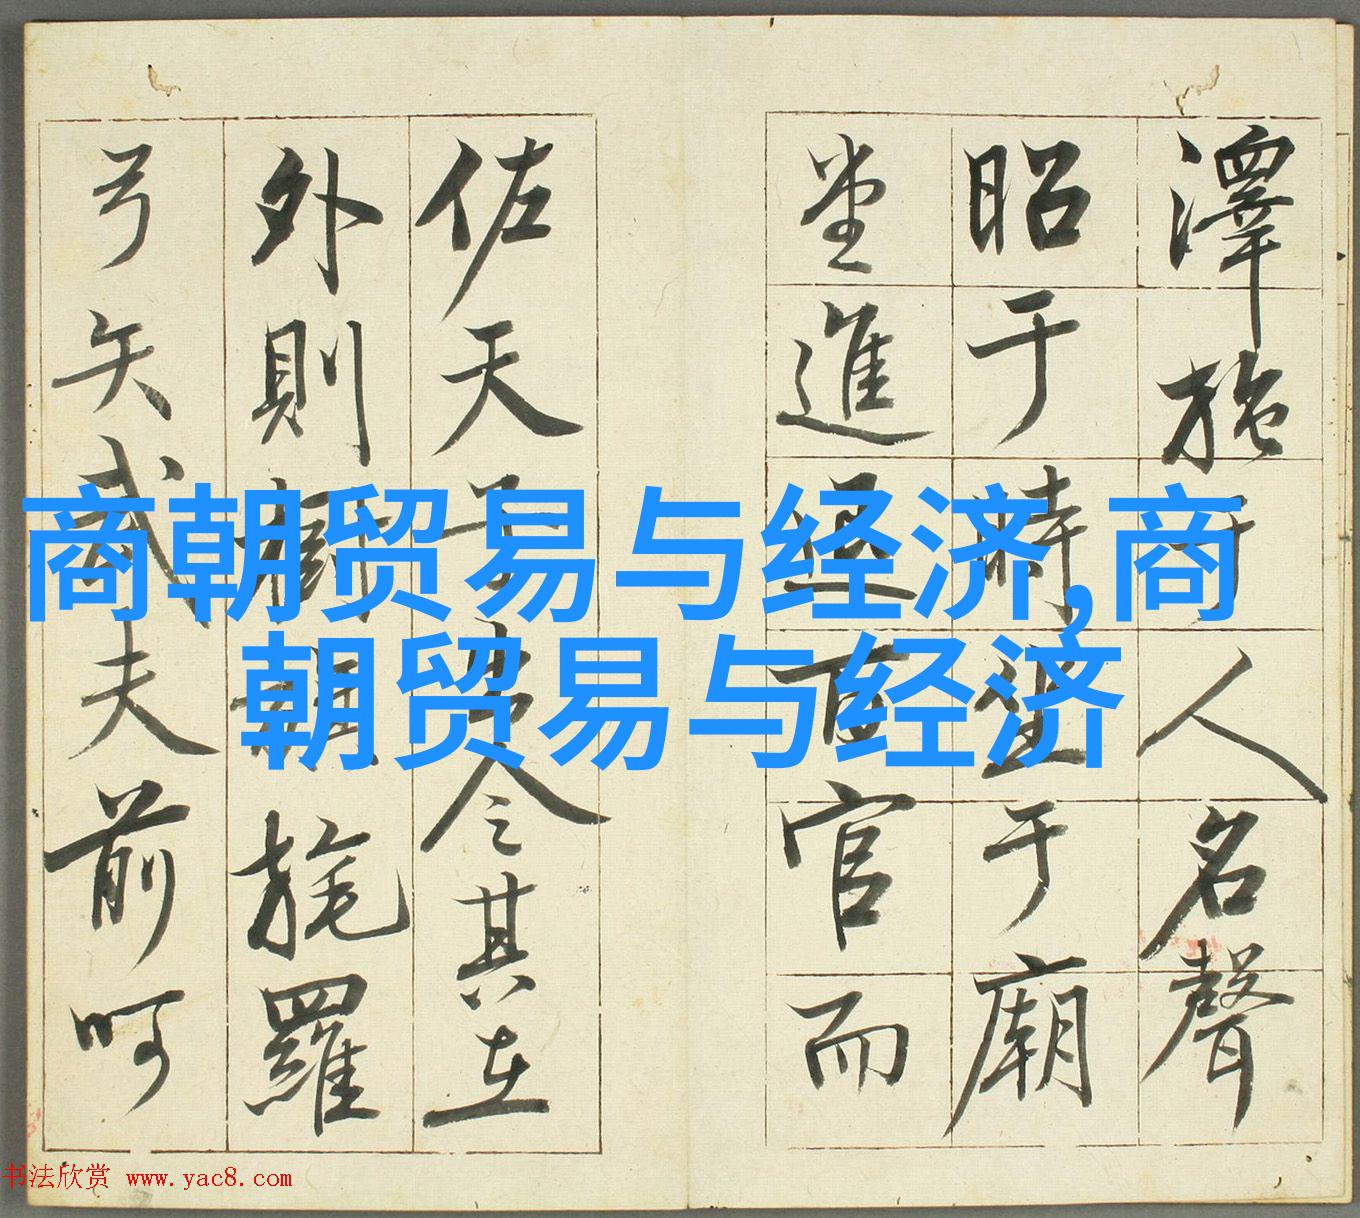 商朝贸易与经济,商
朝贸易与经济
澤施于人名聲
昭于時坐于廟
堂進退百官而
佐天子出令其在
外則樹旗旄羅
弓矢武夫前呵
书法欣赏 www.yac8.com